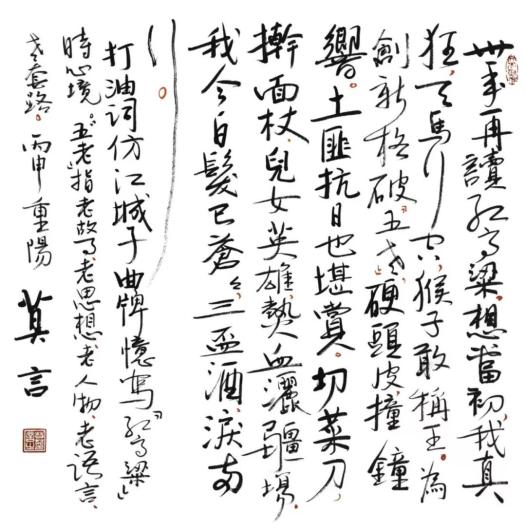 卅年再讀红高粱。想當初，我真
狂，天馬行空，猴子敢稱王。為
創新格破“五老”，硬頭皮，撞鐘
響。土匪抗日也堪賞。切菜刀，
擀面杖。兒女英雄熱血灑疆場。
我今白髮已蒼々，三盃酒，淚两
行。
打油词仿江城子曲牌憶寫“红高粱”
時心境。“五老”指老故事、老思想、老人物、老語言、
老套路。丙申重陽 莫言